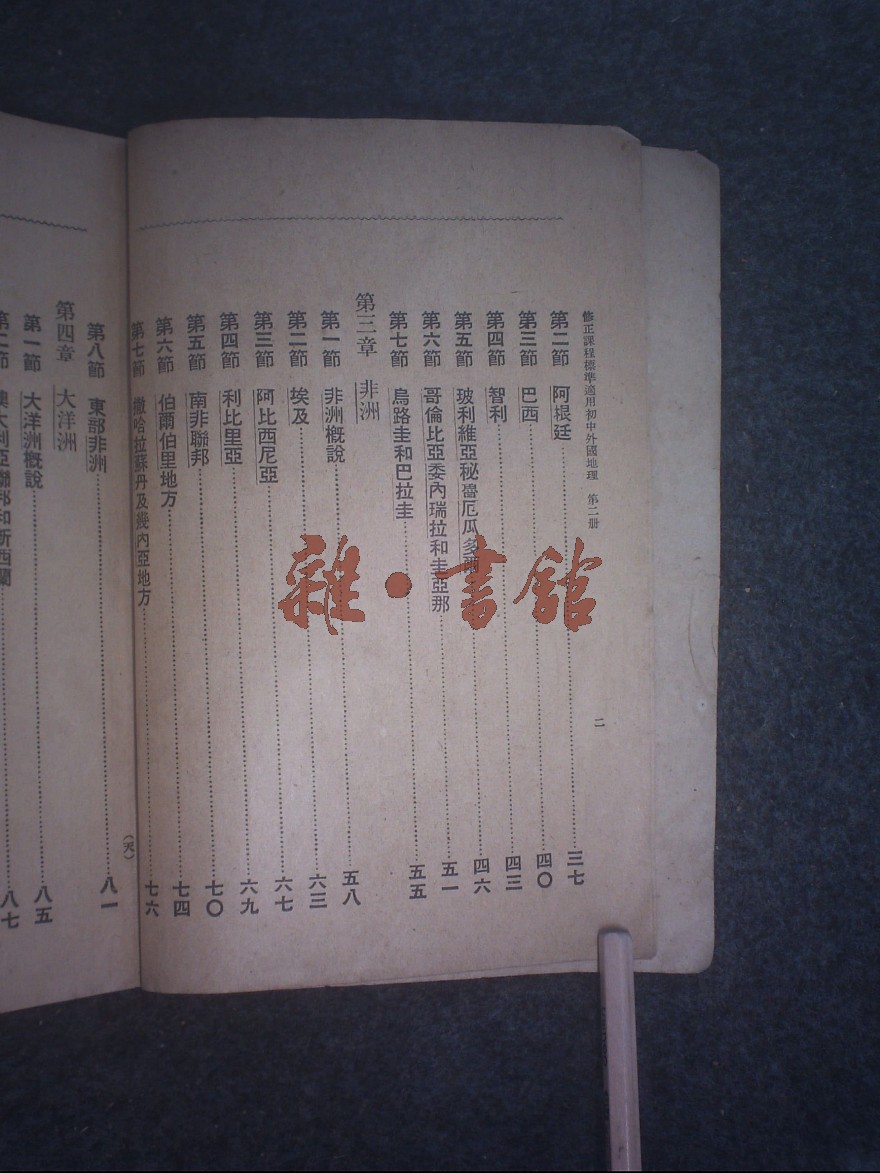 修正課程標準適用初中外國地理 第二册
二
第二節 阿根廷 三七
第三節 巴西 四〇
第四節 智利 四三
第五節 玻利維亞秘魯厄瓜多爾 四六
第六節 哥倫比亞委內瑞拉和圭亞那 五一
第七節 烏路圭和巴拉圭 五五
第三章 非洲
第一節 非洲概說 五八
第二節 埃及 六三
第三節 阿比西尼亞 六七
第四節 利比里亞 六九
第五節 南非聯邦 七〇
第六節 伯爾伯里地方 七四
第七節 撒哈拉蘇丹及幾內亞地方 七六
(天)
第八節 東部非洲 八一
第四章 大洋洲
第一節 大洋洲概說 八五
第二節 澳大利亞聯邦和新西蘭 八七
雜·書館